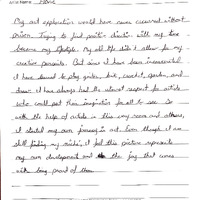 Artist Name: Marie
My art exploration would have never occurred without
prison. Trying to find positive direction with my time
became my lifestyle. My old life didn't allow for my
creative pursuits. But since I have been incarcerated
I have learned to play guitar, knit, crochet, garden, and
draw. I have always had the utmost respect for artists
who could put their imagination for all to see. So
with the help of artists in this very room and others,
it started my own journey in art. Even though I am
still finding my niche, I feel this picture represents
my own development and the joy that comes
with being proud of them.